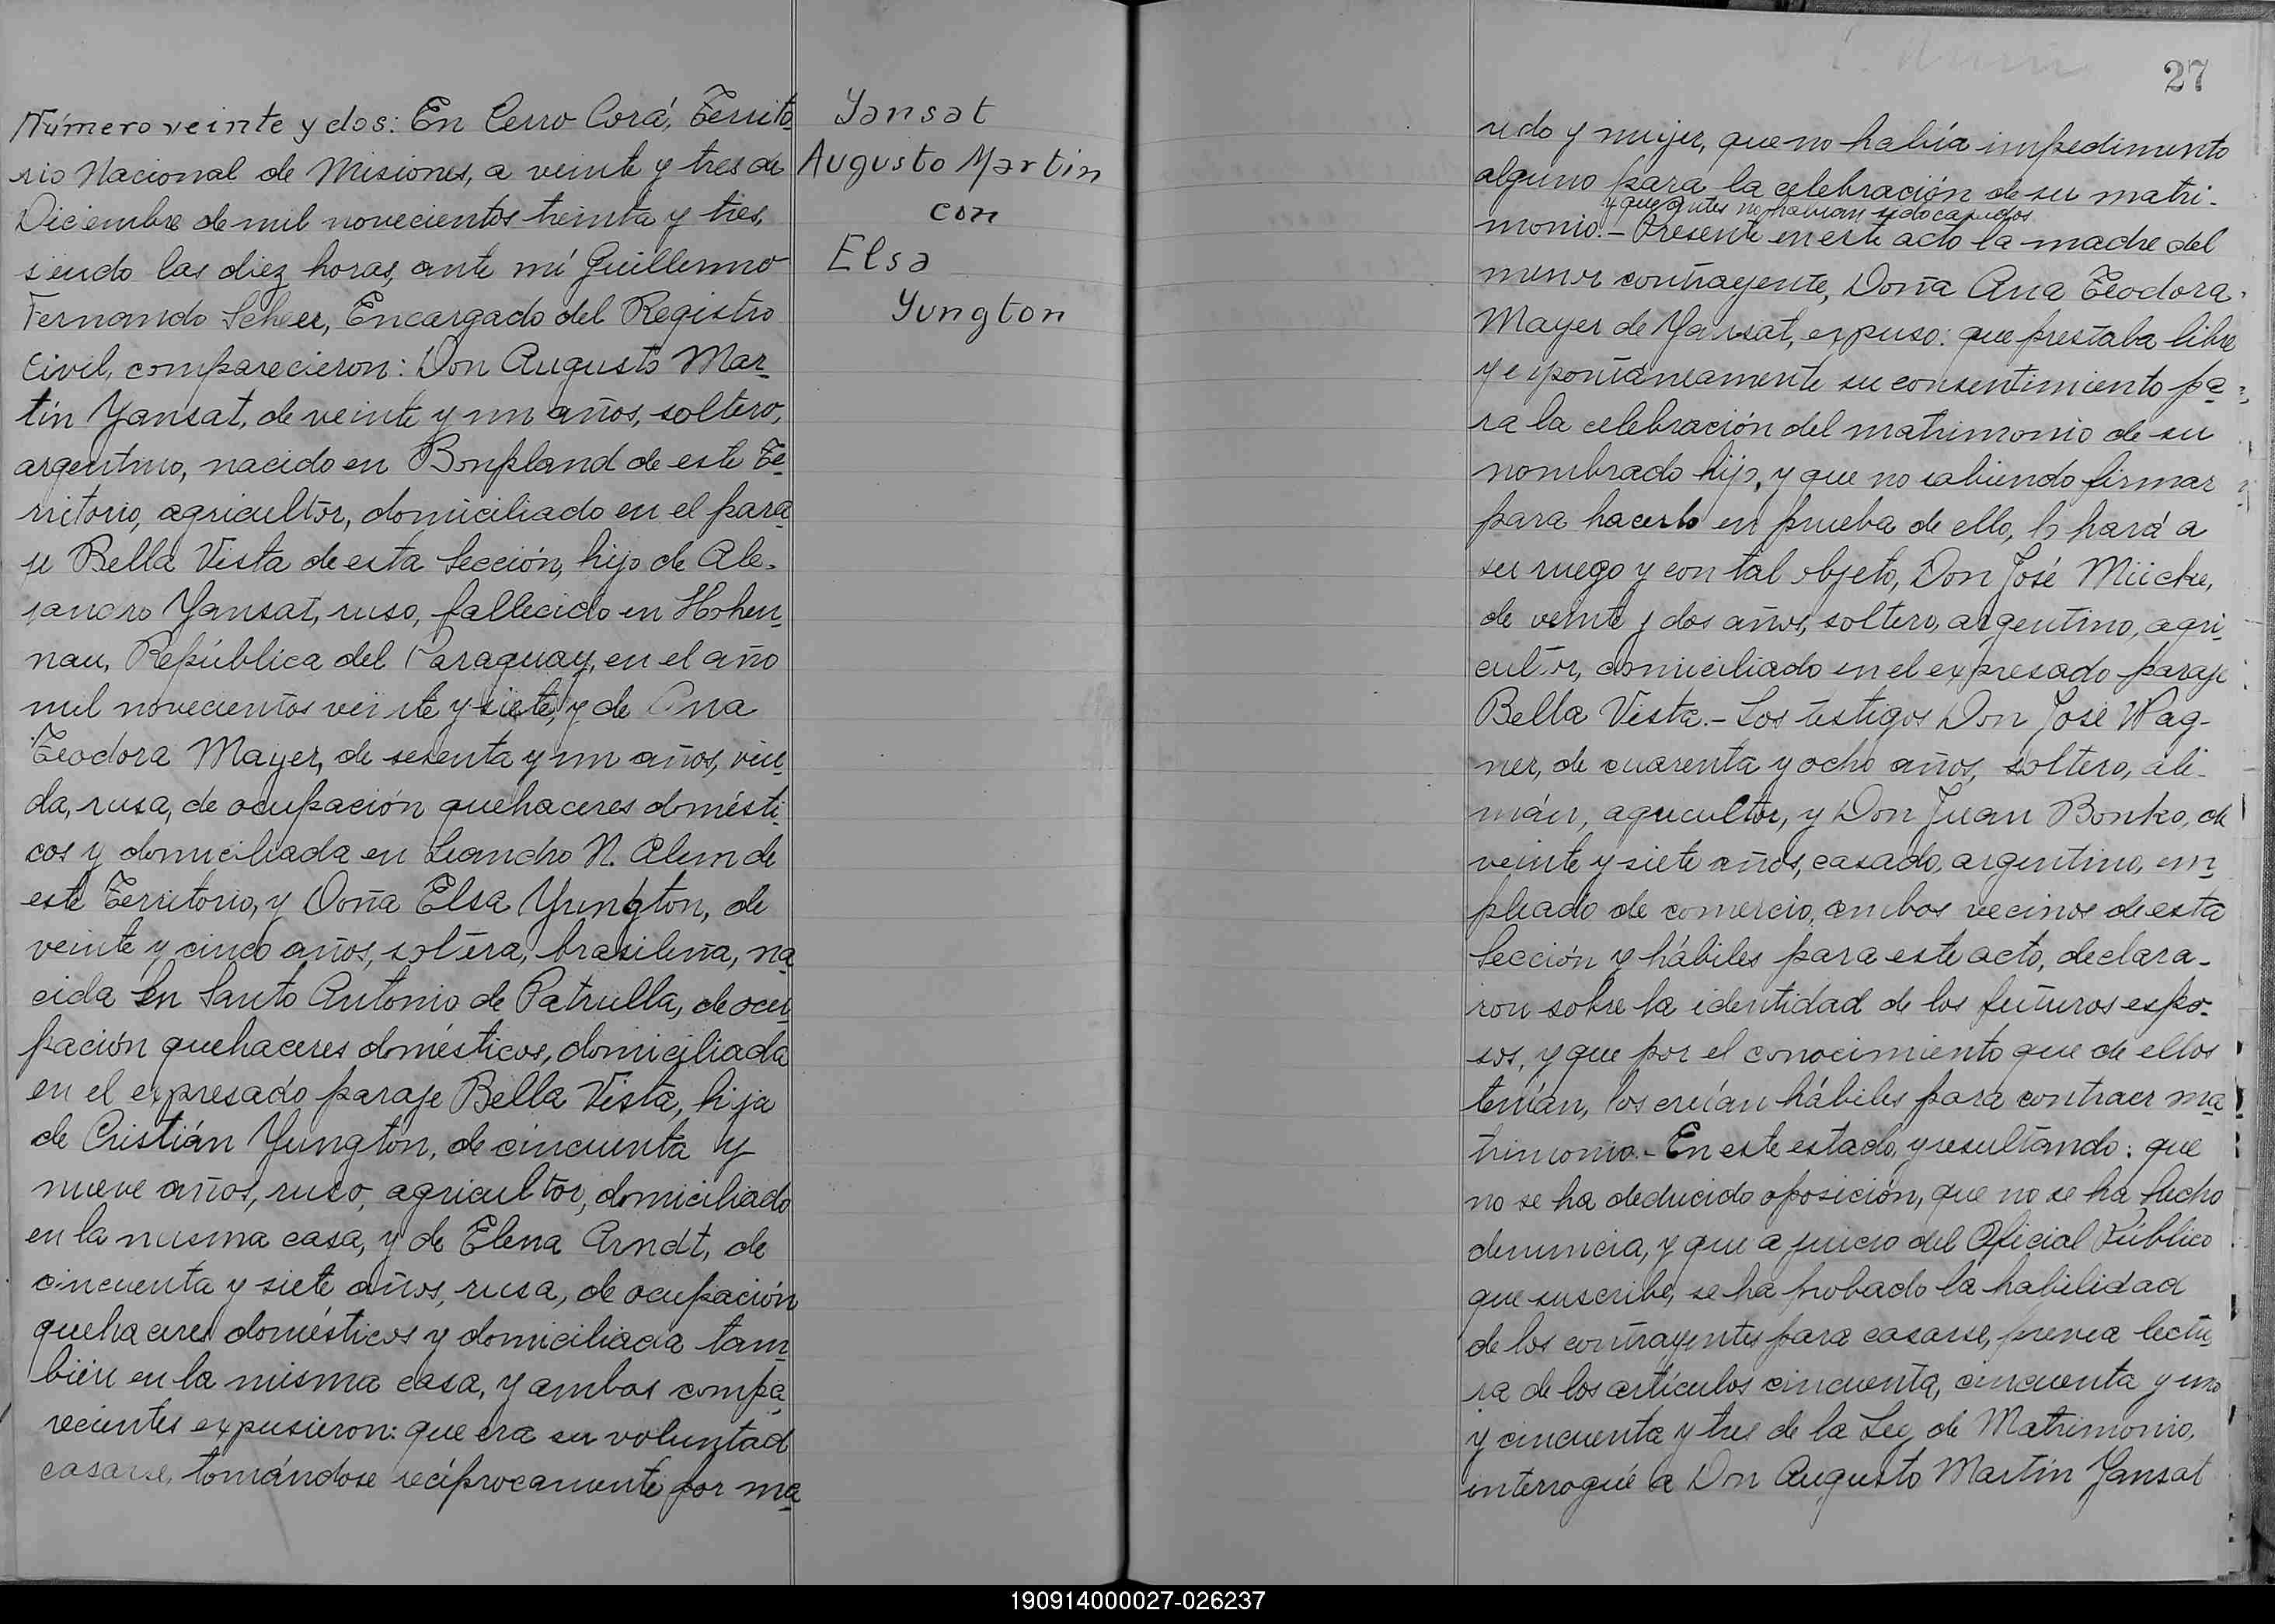 Número veinte y dos: En Cerro Corá, Territo-
rio Nacional de Misiones, a veinte y tres de
Diciembre de mil novecientos treinta y tres,
siendo las diez horas, ante mí Guillermo
Fernando Scheer, Encargado del Registro
Civil, comparecieron: Don Augusto Mar-
tín Yansat, de veinte y un años, soltero,
argentino, nacido en Bonpland de este Te-
rritorio, agricultor, domiciliado en el para-
je Bella Vista de esta Sección, hijo de Ale-
jandro Yansat, ruso, fallecido en Hohen-
nau, República del Paraguay, en el año
mil novecientos veinte y siete, y de Ana
Teodora Mayer, de sesenta y un años, viu-
da, rusa, de ocupación quehaceres domésti-
cos y domiciliada en Leandro N. Alem de
este Territorio, y Doña Elsa Yungton, de
veinte y cinco años, soltera, brasileña, na-
cida en Santo Antonio de Patrulla, de ocu-
pación quehaceres domésticos, domiciliada
en el expresado paraje Bella Vista, hija
de Cristián Yungton, de cincuenta y
nueve años, ruso, agricultor, domiciliado
en la misma casa, y de Elena Arndt, de
cincuenta y siete años, rusa, de ocupación
quehaceres domésticos y domiciliada tam-
bién en la misma casa, y ambos compa-
recientes expusieron: que era su voluntad
casarse, tomándose recíprocamente por ma-
Yansat
Augusto Martin
con
Elsa
Yungton
27
rido y mujer, que no había impedimento
alguno para la celebración de su matri-
y que antes no habían sido casados
monio.- Presente en este acto la madre del
menor contrayente, Doña Ana Teodora
Mayer de Yansat, expuso: que prestaba libre
y espontáneamente su consentimiento pa-
ra la celebración del matrimonio de su
nombrado hijo, y que no sabiendo firmar
para hacerlo en prueba de ello, lo hará a
su ruego y con tal objeto, Don José Mücke,
de veinte y dos años, soltero, argentino, agri-
cultor, domiciliado en el expresado paraje
Bella Vista.- Los testigos Don José Wag-
ner, de cuarenta y ocho años, soltero, ale-
mán, agricultor, y Don Juan Bonko, de
veinte y siete años, casado, argentino, em-
pleado de comercio, ambos vecinos de esta
Sección y hábiles para este acto, declara-
ron sobre la identidad de los futuros espo-
sos, y que por el conocimiento que de ellos
tenían, los creían hábiles para contraer ma-
trimonio.- En este estado, y resultando: que
no se ha deducido oposición, que no se ha hecho
denuncia, y que a juicio del Oficial Público
que suscribe, se ha probado la habilidad
de los contrayentes para casarse, previa lectu-
ra de los artículos cincuenta, cincuenta y uno
y cincuenta y tres de la Ley de Matrimonio,
interrogué a Don Augusto Martín Yansat
190914000027-026237